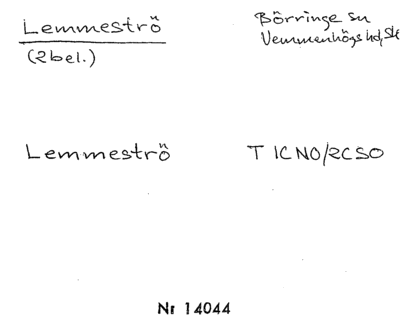 Lemmeströ
Börringe sn
(2bel.)
Vemmenhögs hd, Sk
Lemmeströ
T 1CNO/2CSO
Nr 14044